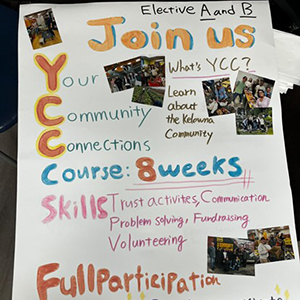 Elective A and B
Join us
What's YCC?
Your
Community
Connections
Learn
about
the Kelowna
Community
Course: 8 weeks
Skills Trust activites, Communication
Problem solving, Fundraising
Volunteering
Full participation